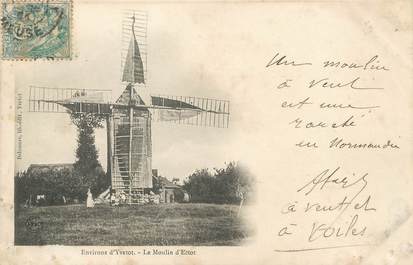 Un moulin
à vent
est une
rareté
en Normandie
à vent et
à voiles
Delamare, lib.-édit., Yvetot
Environs d'Yvetot. - Le Moulin d'Ectot